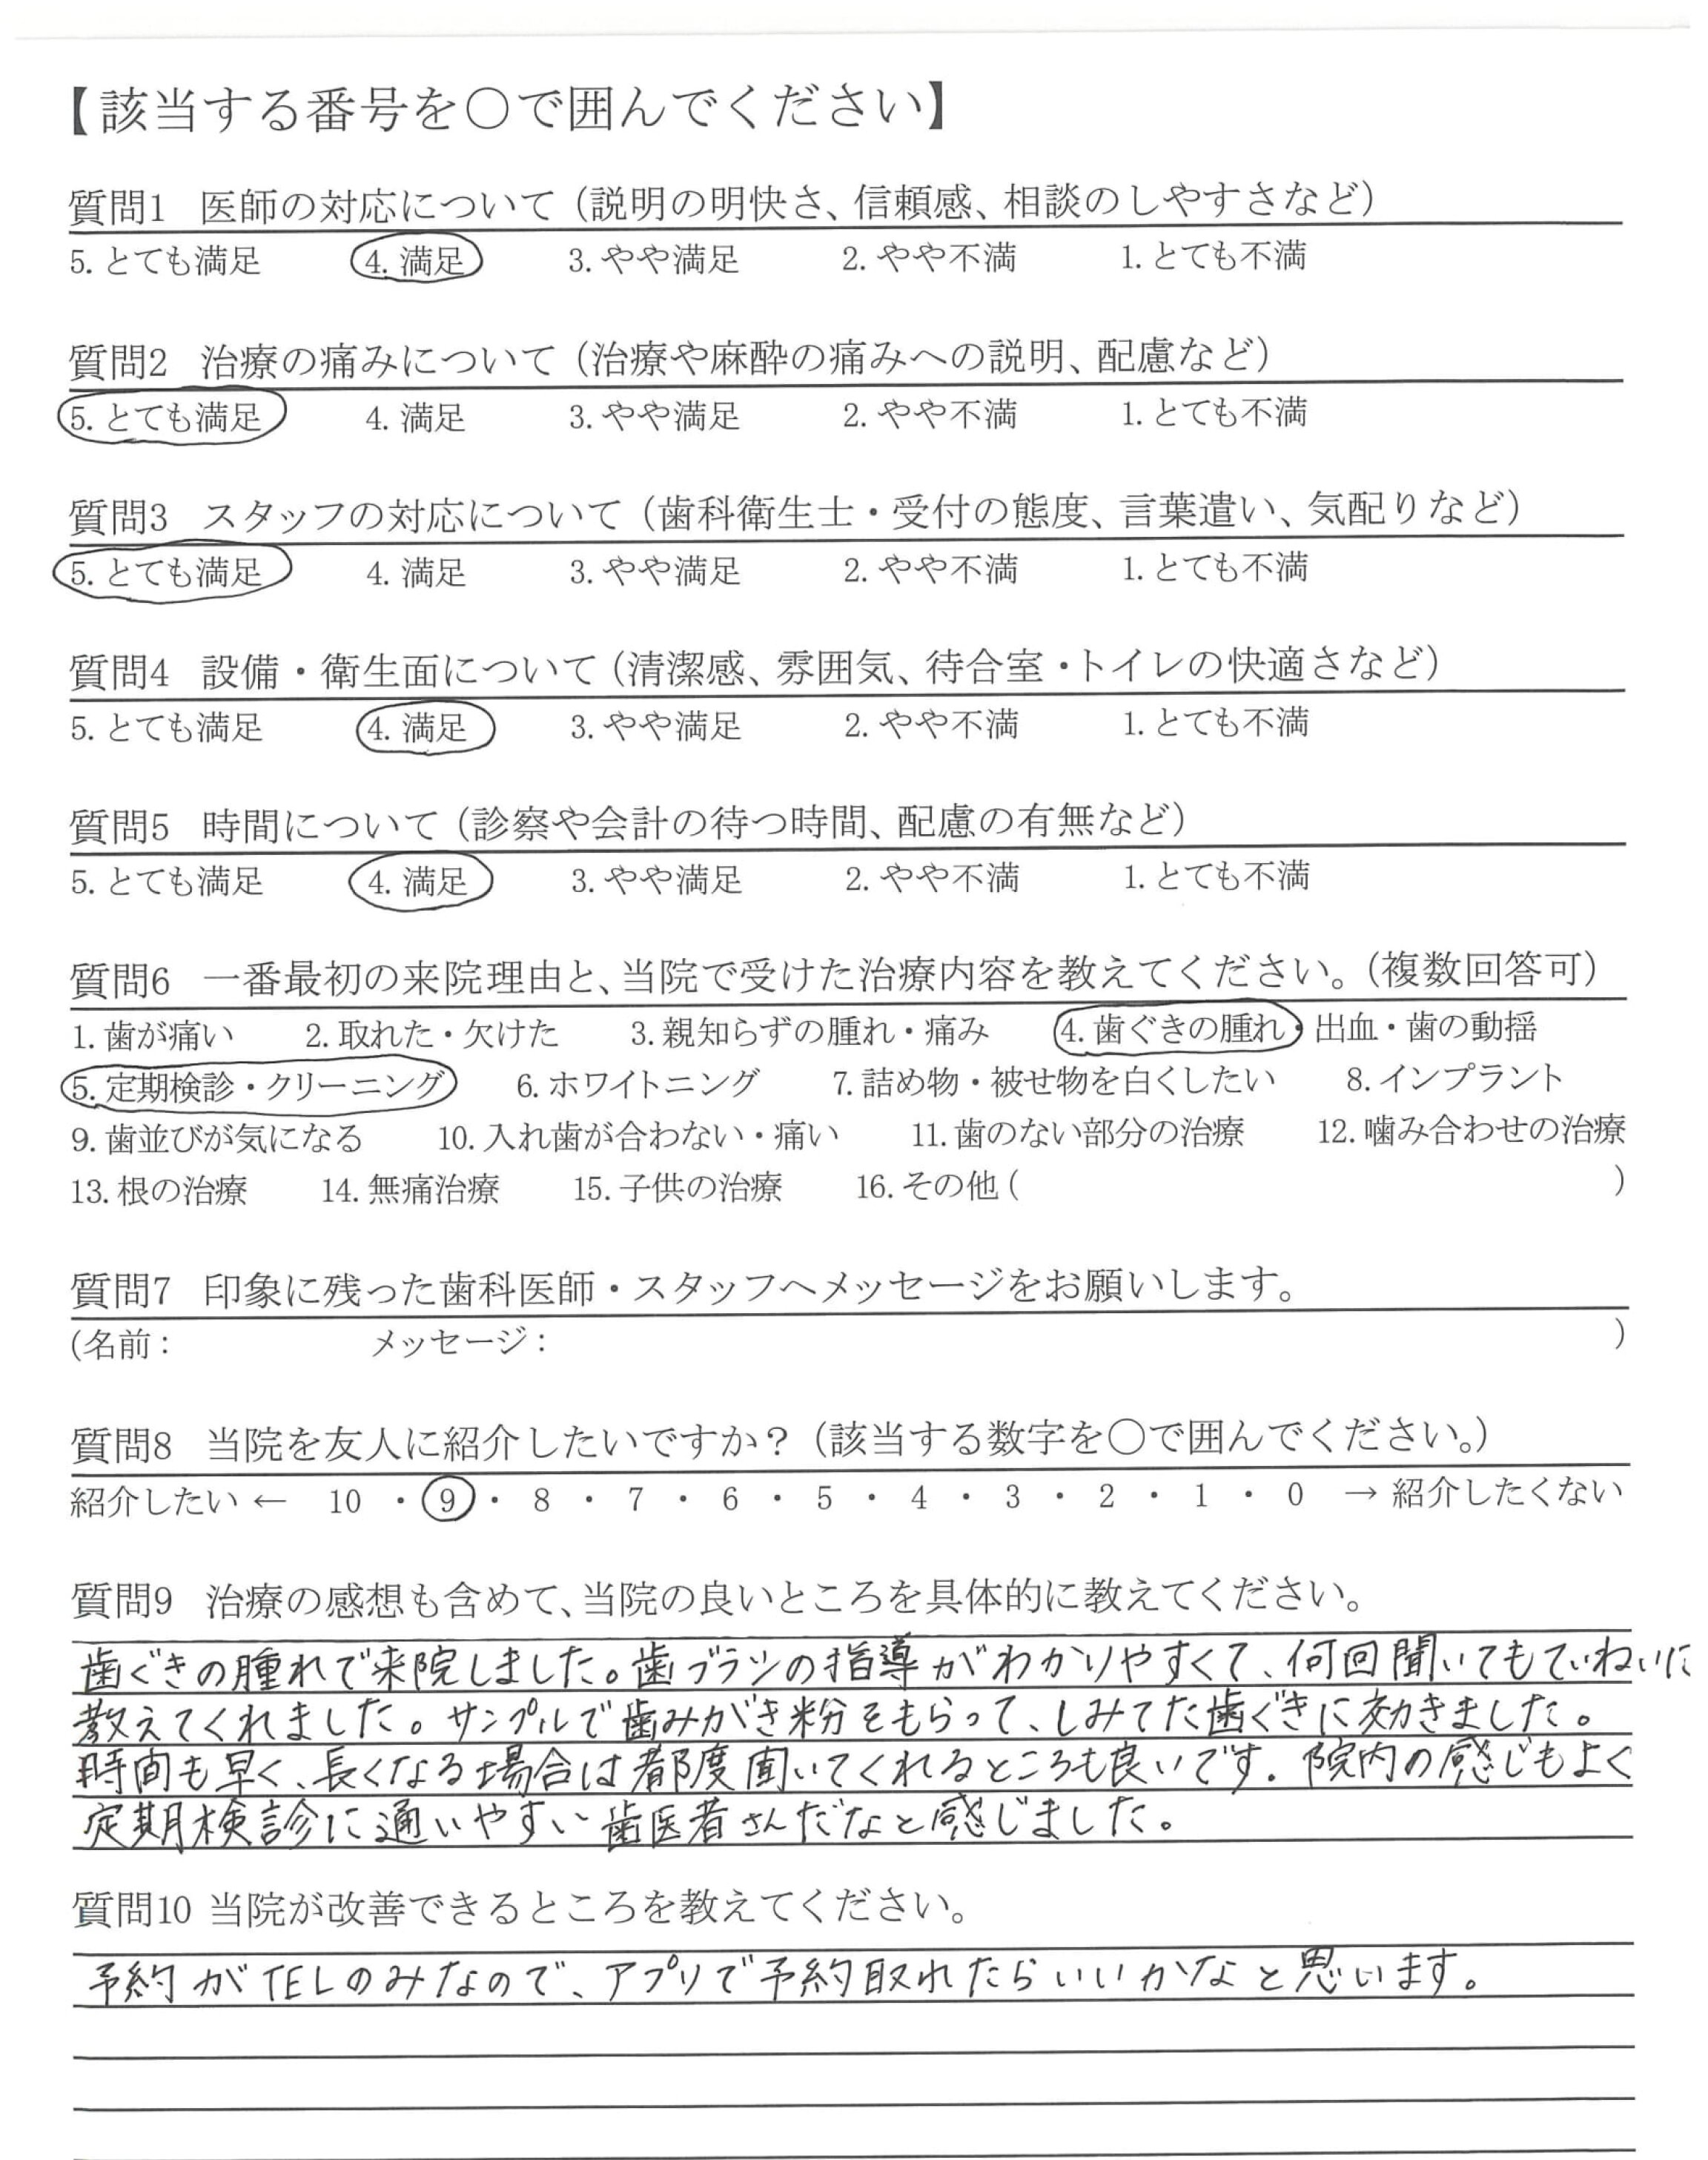 【該当する番号を○で囲んでください】
質問1 医師の対応について（説明の明快さ、信頼感、相談のしやすさなど）
5. とても満足 4. 満足 3. やや満足 2. やや不満 1. とても不満
質問2 治療の痛みについて（治療や麻酔の痛みへの説明、配慮など）
5. とても満足 4. 満足 3. やや満足 2. やや不満 1. とても不満
質問3 スタッフの対応について（歯科衛生士・受付の態度、言葉遣い、気配りなど）
5. とても満足 4. 満足 3. やや満足 2. やや不満 1. とても不満
質問4 設備・衛生面について（清潔感、雰囲気、待合室・トイレの快適さなど）
5. とても満足 4. 満足 3. やや満足 2. やや不満 1. とても不満
質問5 時間について（診察や会計の待つ時間、配慮の有無など）
5. とても満足 4. 満足 3. やや満足 2. やや不満 1. とても不満
質問6 一番最初の来院理由と、当院で受けた治療内容を教えてください。（複数回答可）
1. 歯が痛い 2. 取れた・欠けた 3. 親知らずの腫れ・痛み 4. 歯ぐきの腫れ・出血・歯の動揺
5. 定期検診・クリーニング 6. ホワイトニング 7. 詰め物・被せ物を白くしたい 8. インプラント
9. 歯並びが気になる 10. 入れ歯が合わない・痛い 11. 歯のない部分の治療 12. 噛み合わせの治療
13. 根の治療 14. 無痛治療 15. 子供の治療 16. その他 ( )
質問7 印象に残った歯科医師・スタッフへメッセージをお願いします。
(名前： メッセージ： )
質問8 当院を友人に紹介したいですか？（該当する数字を○で囲んでください。）
紹介したい ← 10 ・ 9 ・ 8 ・ 7 ・ 6 ・ 5 ・ 4 ・ 3 ・ 2 ・ 1 ・ 0 → 紹介したくない
質問9 治療の感想も含めて、当院の良いところを具体的に教えてください。
歯ぐきの腫れで来院しました。歯ブラシの指導がわかりやすくて、何回聞いてもていねいに
教えてくれました。サンプルで歯みがき粉をもらって、しみてた歯ぐきに効きました。
時間も早く、長くなる場合は都度聞いてくれるところも良いです。院内の感じもよく
定期検診に通いやすい歯医者さんだなと感じました。
質問10 当院が改善できるところを教えてください。
予約がTELのみなので、アプリで予約取れたらいいかなと思います。